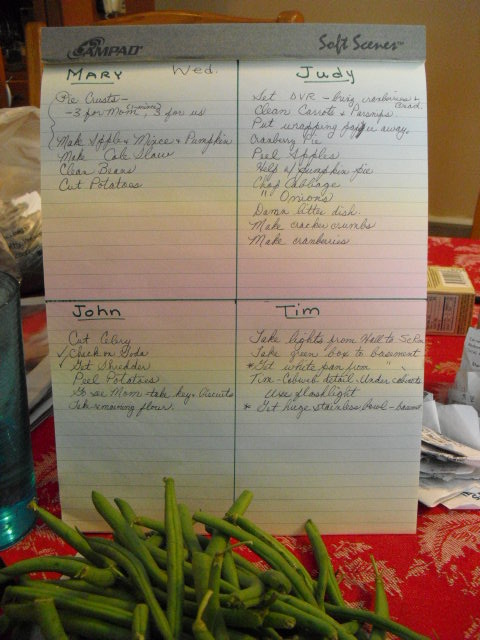 AMPAD
Soft Scenes™
MARY
Wed.
Pie Crusts -
-3 for Mom, 3 for us
Make Apple + Mince + Pumpkin
Make Cole Slaw
Clean Beans
Cut Potatoes
Judy
Set DVR - bring cranberries +
Clean Carrots + Parsnips
Put wrapping paper away.
Cranberry Pie
Peel Apples
Help w/ pumpkin pie
Chop Cabbage
" Onions
Damn litter dish.
Make cracker crumbs
Make cranberries
John
Cut Celery
✓ Check on Soda
Get Shredder
Peel Potatoes
Go see Mom - take key, biscuits
Take remaining flour.
Tim
Take lights from Hall to
Take green box to basement
* Get white pan from "
Tim - Cobweb detail. Under cabinets
Use flashlight
* Get huge stainless bowl - basement